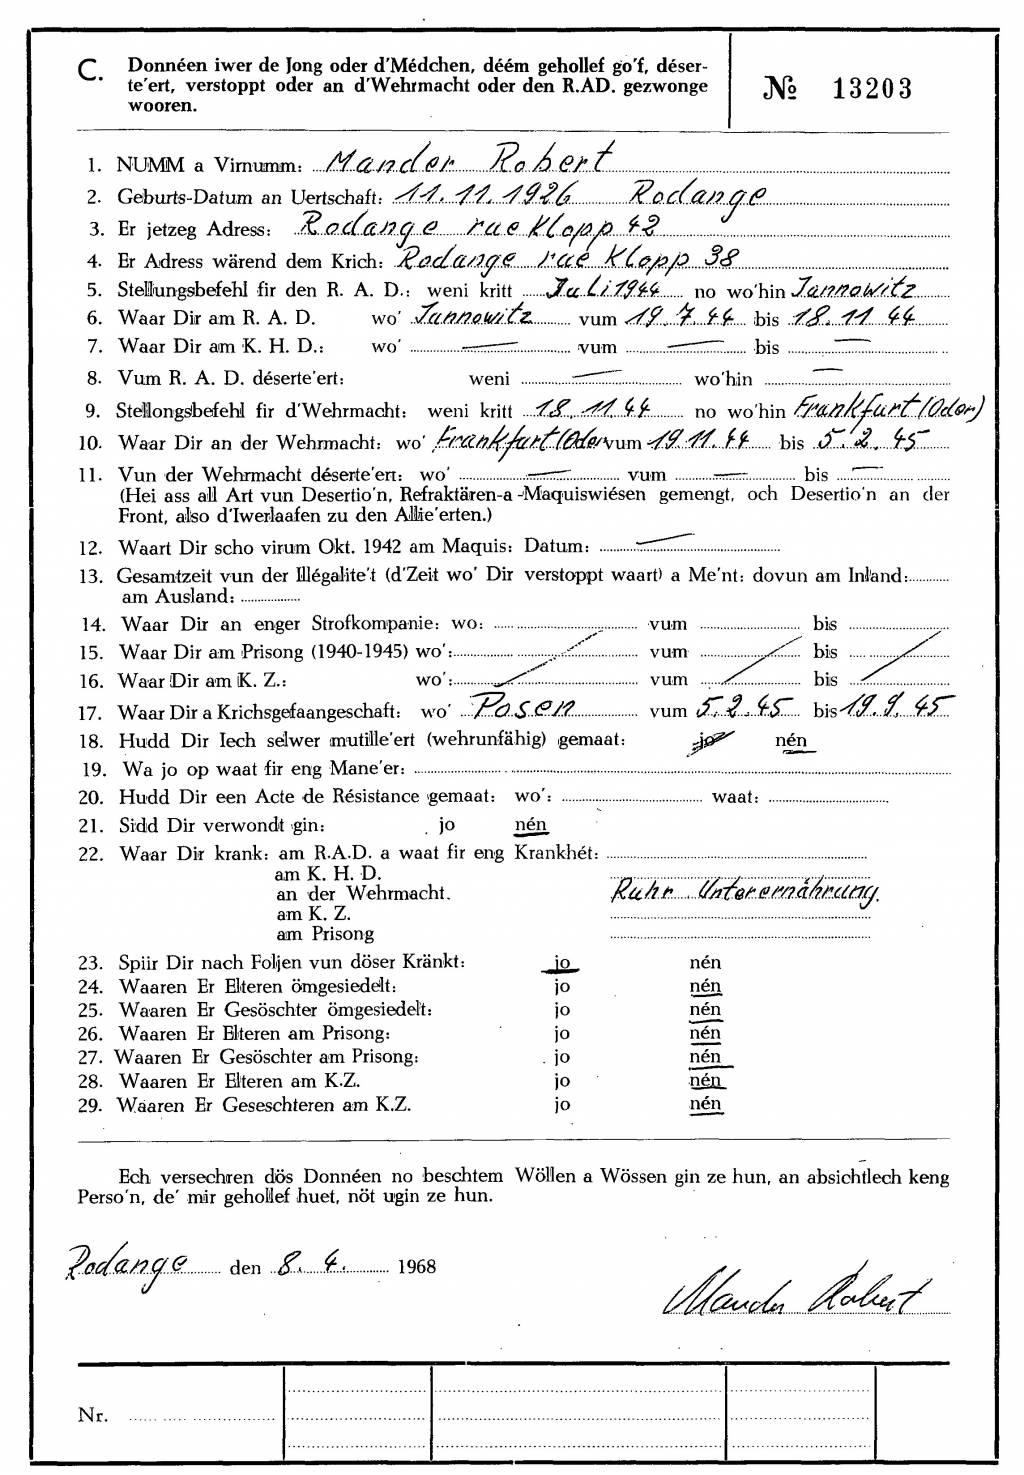 C. Donnéen iwer de Jong oder d'Médchen, déém gehollef go'f, déser-
te'ert, verstoppt oder an d'Wehrmacht oder den R.AD. gezwonge
wooren.
№ 13203
1. NUMM a Virnumm: Mander Robert
2. Geburts-Datum an Uertschaft: 11. 11. 1926 Rodange
3. Er jetzeg Adress: Rodange rue Klopp 42
4. Er Adress wärend dem Krich: Rodange rue Klopp 38
5. Stellungsbefehl fir den R. A. D.: weni kritt Juli 1944 no wo'hin Jannowitz
6. Waar Dir am R. A. D. wo' Jannowitz vum 19. 7. 44 bis 18. 11 44
7. Waar Dir am K. H. D.: wo' — vum — bis —
8. Vum R. A. D. déserte'ert: weni — wo'hin —
9. Stellongsbefehl fir d'Wehrmacht: weni kritt 18. 11. 44 no wo'hin Frankfurt (Oder)
10. Waar Dir an der Wehrmacht: wo' Frankfurt (Oder vum 19 11. 44 bis 5. 2. 45
11. Vun der Wehrmacht déserte'ert: wo' — vum — bis —
(Hei ass all Art vun Desertio'n, Refraktären-a -Maquiswiésen gemengt, och Desertio'n an der
Front, also d'Iwerlaafen zu den Allie'erten.)
12. Waart Dir scho virum Okt. 1942 am Maquis: Datum: —
13. Gesamtzeit vun der Illégalite't (d'Zeit wo' Dir verstoppt waart) a Me'nt: dovun am Inland:
am Ausland:
14. Waar Dir an enger Strofkompanie: wo: vum bis
15. Waar Dir am Prisong (1940-1945) wo': vum bis
16. Waar Dir am K. Z.: wo': vum bis
17. Waar Dir a Krichsgefaangeschaft: wo' Posen vum 5. 2. 45 bis 19. 9. 45
18. Hudd Dir Iech selwer mutille'ert (wehrunfähig) gemaat: jo nén
19. Wa jo op waat fir eng Mane'er:
20. Hudd Dir een Acte de Résistance gemaat: wo': waat:
21. Sidd Dir verwondt gin: jo nén
22. Waar Dir krank: am R.A.D. a waat fir eng Krankhét:
am K. H. D.
an der Wehrmacht. Ruhr Unterernährung
am K. Z.
am Prisong
23. Spiir Dir nach Foljen vun döser Kränkt: jo nén
24. Waaren Er Elteren ömgesiedelt: jo nén
25. Waaren Er Gesöschter ömgesiedelt: jo nén
26. Waaren Er Elteren am Prisong: jo nén
27. Waaren Er Gesöschter am Prisong: jo nén
28. Waaren Er Elteren am K.Z. jo nén
29. Waaren Er Geseschteren am K.Z. jo nén
Ech versechren dös Donnéen no beschtem Wöllen a Wössen gin ze hun, an absichtlech keng
Perso'n, de' mir gehollef huet, nöt ugin ze hun.
Rodange den 8. 4. 1968
Mander Robert
Nr.